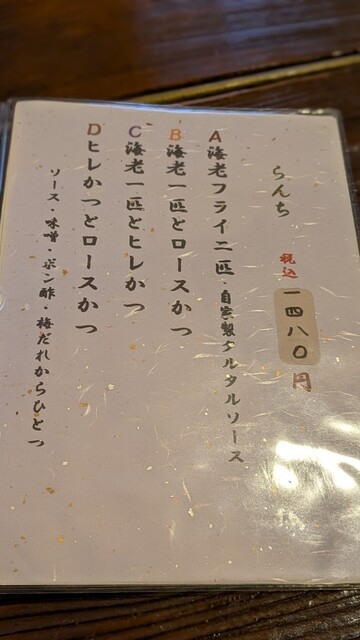 らんち
税込 一四八〇円
A 海老フライ二匹・自家製タルタルソース
B 海老一匹とロースかつ
C 海老一匹とヒレかつ
D ヒレかつとロースかつ
ソース・味噌・ポン酢・梅だれからひとつ